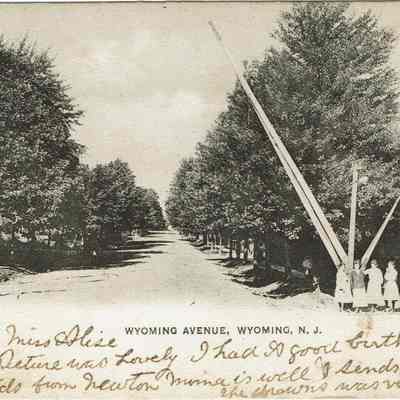 WYOMING AVENUE, WYOMING, N. J.
Miss Alise
Picture was Lovely I had A good birth
ds from Newton Moma is well I sends
the drawns was v